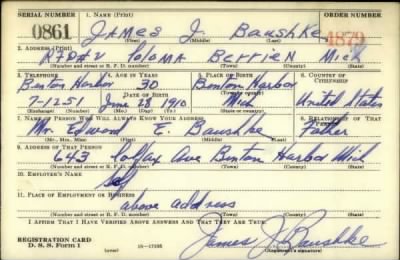 SERIAL NUMBER 1. NAME (Print) ORDER NUMBER
0861 JAMES J. Baushke 4879
(First) (Middle) (Last)
2. ADDRESS (Print)
RFD#2 Paloma Berrien Mich
(Number and street or R. F. D. number) (Town) (County) (State)
3. TELEPHONE 4. AGE IN YEARS 5. PLACE OF BIRTH 6. COUNTRY OF CITIZENSHIP
Benton Harbor 30 Benton Harbor
DATE OF BIRTH (Town or county)
7-1251 June 28 1910 Mich United States
(Exchange) (Number) (Mo.) (Day) (Yr.) (State or country)
7. NAME OF PERSON WHO WILL ALWAYS KNOW YOUR ADDRESS 8. RELATIONSHIP OF THAT PERSON
Mr. Edward E. Baushke Father
(Mr., Mrs., Miss) (First) (Middle) (Last)
9. ADDRESS OF THAT PERSON
643 Colfax Ave Benton Harbor Mich
(Number and street or R. F. D. number) (Town) (County) (State)
10. EMPLOYER'S NAME
Self
11. PLACE OF EMPLOYMENT OR BUSINESS
above address
(Number and street or R. F. D. number) (Town) (County) (State)
I AFFIRM THAT I HAVE VERIFIED ABOVE ANSWERS AND THAT THEY ARE TRUE.
REGISTRATION CARD
D. S. S. Form 1 James J Baushke
(Registrant's signature)